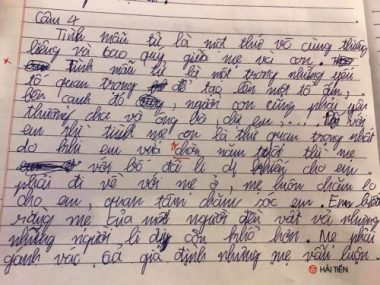 Câu 4
Tình mẫu tử là một thứ vô cùng thiêng
liêng và bao quy, giữa mẹ và con.
Tình mẫu tử là một trong những yếu
tố quan trọng để tạo lên một tổ ấm,
bên cạnh đó, người con cũng phải yêu
thương cha và ông bà, chị em, ... với
em thì tình mẹ con là thứ quan trọng nhất
do khi em vừa chòn năm tuổi thì mẹ
với bố đã li dị khiến cho em
phải đi về với mẹ ở, mẹ luôn chăm lo
cho em, quan tâm chăm sóc em. Em biết
rằng mẹ của một người đến vất vả nhưng
những người li dị còn khổ hơn. Mẹ phải
gánh vác cả gia định nhưng mẹ vẫn luôn
HẢI TIẾN